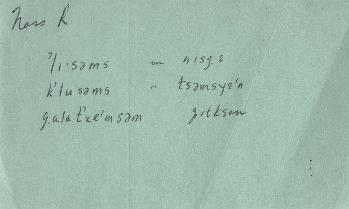 Nass R
ʔli·səms in nisg̣a
k'lusəms " tsəmsyɛ'n
g̣alat'xe'msəm gitksan